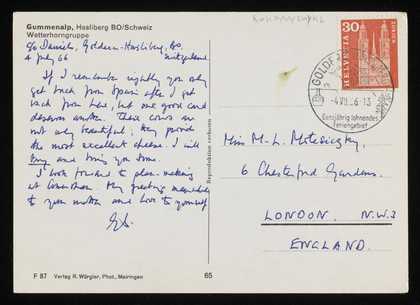 Gummenalp, Hasliberg BO/Schweiz
Wetterhorngruppe
c/o Daniel, Goldern-Hasliberg, BO,
4 July 66 Switzerland
If I remember rightly you only
get back from Spain after I get
back from here, but one good card
deserves another. These cows are
not only beautiful; they provide
the most excellent cheese. I will
bring and bring you some.
I look forward to plan-making
at
to your mother and love to yourself
F 87 Verlag R. Würgler, Phot., Meiringen
65
Reproduktion verboten
HELVETIA
30
ZÜRICH
GOLDERN
-4.VII.66-13
Ganzjährig lohnendes
Feriengebiet
Miss M.-L. Motesiczky,
6 Chesterford Gardens,
LONDON. N.W.3
ENGLAND.